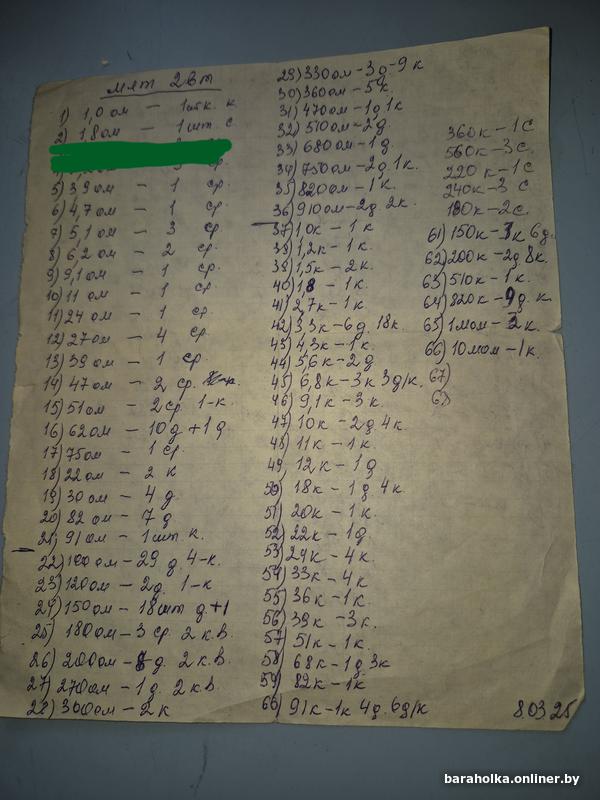 млт 2вт
1) 1,0 ом - 1шт к. к
2) 1,8 ом - 1 шт. с
5) 3,9 ом - 1 ср.
6) 4,7 ом - 1 ср.
7) 5,1 ом - 3 ср
8) 6,2 ом - 2 ср.
9) 9,1 ом - 1 ср.
10) 11 ом - 1 ср.
11) 24 ом - 1 ср.
12) 27 ом - 4 ср.
13) 39 ом - 1 ср.
14) 47 ом - 2 ср.
15) 51 ом - 2 ср 1-к.
16) 62 ом - 10 д + 1 д.
17) 75 ом - 1 ср.
18) 22 ом - 2 к
19) 30 ом - 4 д.
20) 82 ом - 7 д
21) 91 ом - 1 шт к.
22) 100 ом - 29 д 4-к.
23) 120 ом - 2 д. 1-к
24) 150 ом - 18 шт д +1
25) 180 ом - 3 ср 2 к.в.
26) 200 ом - д. 2 к.в.
27) 270 ом - 1 д. 2 к.в
28) 300 ом - 2 к
29) 330 ом - 3 д - 9 к
30) 360 ом - 5 к.
31) 470 ом - 1 д 1 к
32) 510 ом - 2 д.
33) 680 ом - 1 д.
34) 750 ом - 2 д. 1 к.
35) 820 ом - 1 к.
36) 910 ом - 2 д. 2 к.
37) 10 к - 1 к
38) 1,2 к - 1 к.
39) 1,5 к - 2 к.
40) 1,8 - 1 к.
41) 2,7 к - 1 к.
42) 3,3 к - 6 д. 18 к.
43) 4,3 к - 1 к.
44) 5,6 к - 2 д
45) 6,8 к - 3 к 3 д/к.
46) 9,1 к - 3 к.
47) 10 к - 2 д. 4 к.
48) 11 к - 1 к.
49. 12 к - 1 д
50) 18 к - 1 д 4 к.
51) 20 к - 1 к.
52) 22 к - 1 д.
53) 24 к - 4 к.
54) 33 к - 4 к.
55) 36 к - 1 к.
56) 39 к - 3 к.
57) 51 к - 1 к.
58) 68 к - 1 д 3 к
59) 82 к - 1 к
60) 91 к - 1 к 4 д. 6 д/к
360 к - 1 с
560 к - 3 с.
220 к - 1 с
240 к - 3 с
180 к - 2 с.
61) 150 к - к 6 д.
62) 200 к - 2 д 8 к.
63) 510 к - 1 к.
64) 820 к - 9 д. к.
65) 1 мом - к.
66) 10 мом - 1 к.
67)
68)
80325
baraholka.onliner.by